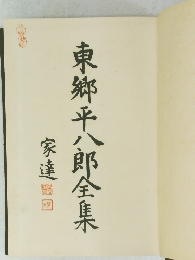 東郷平八郎全集
家達